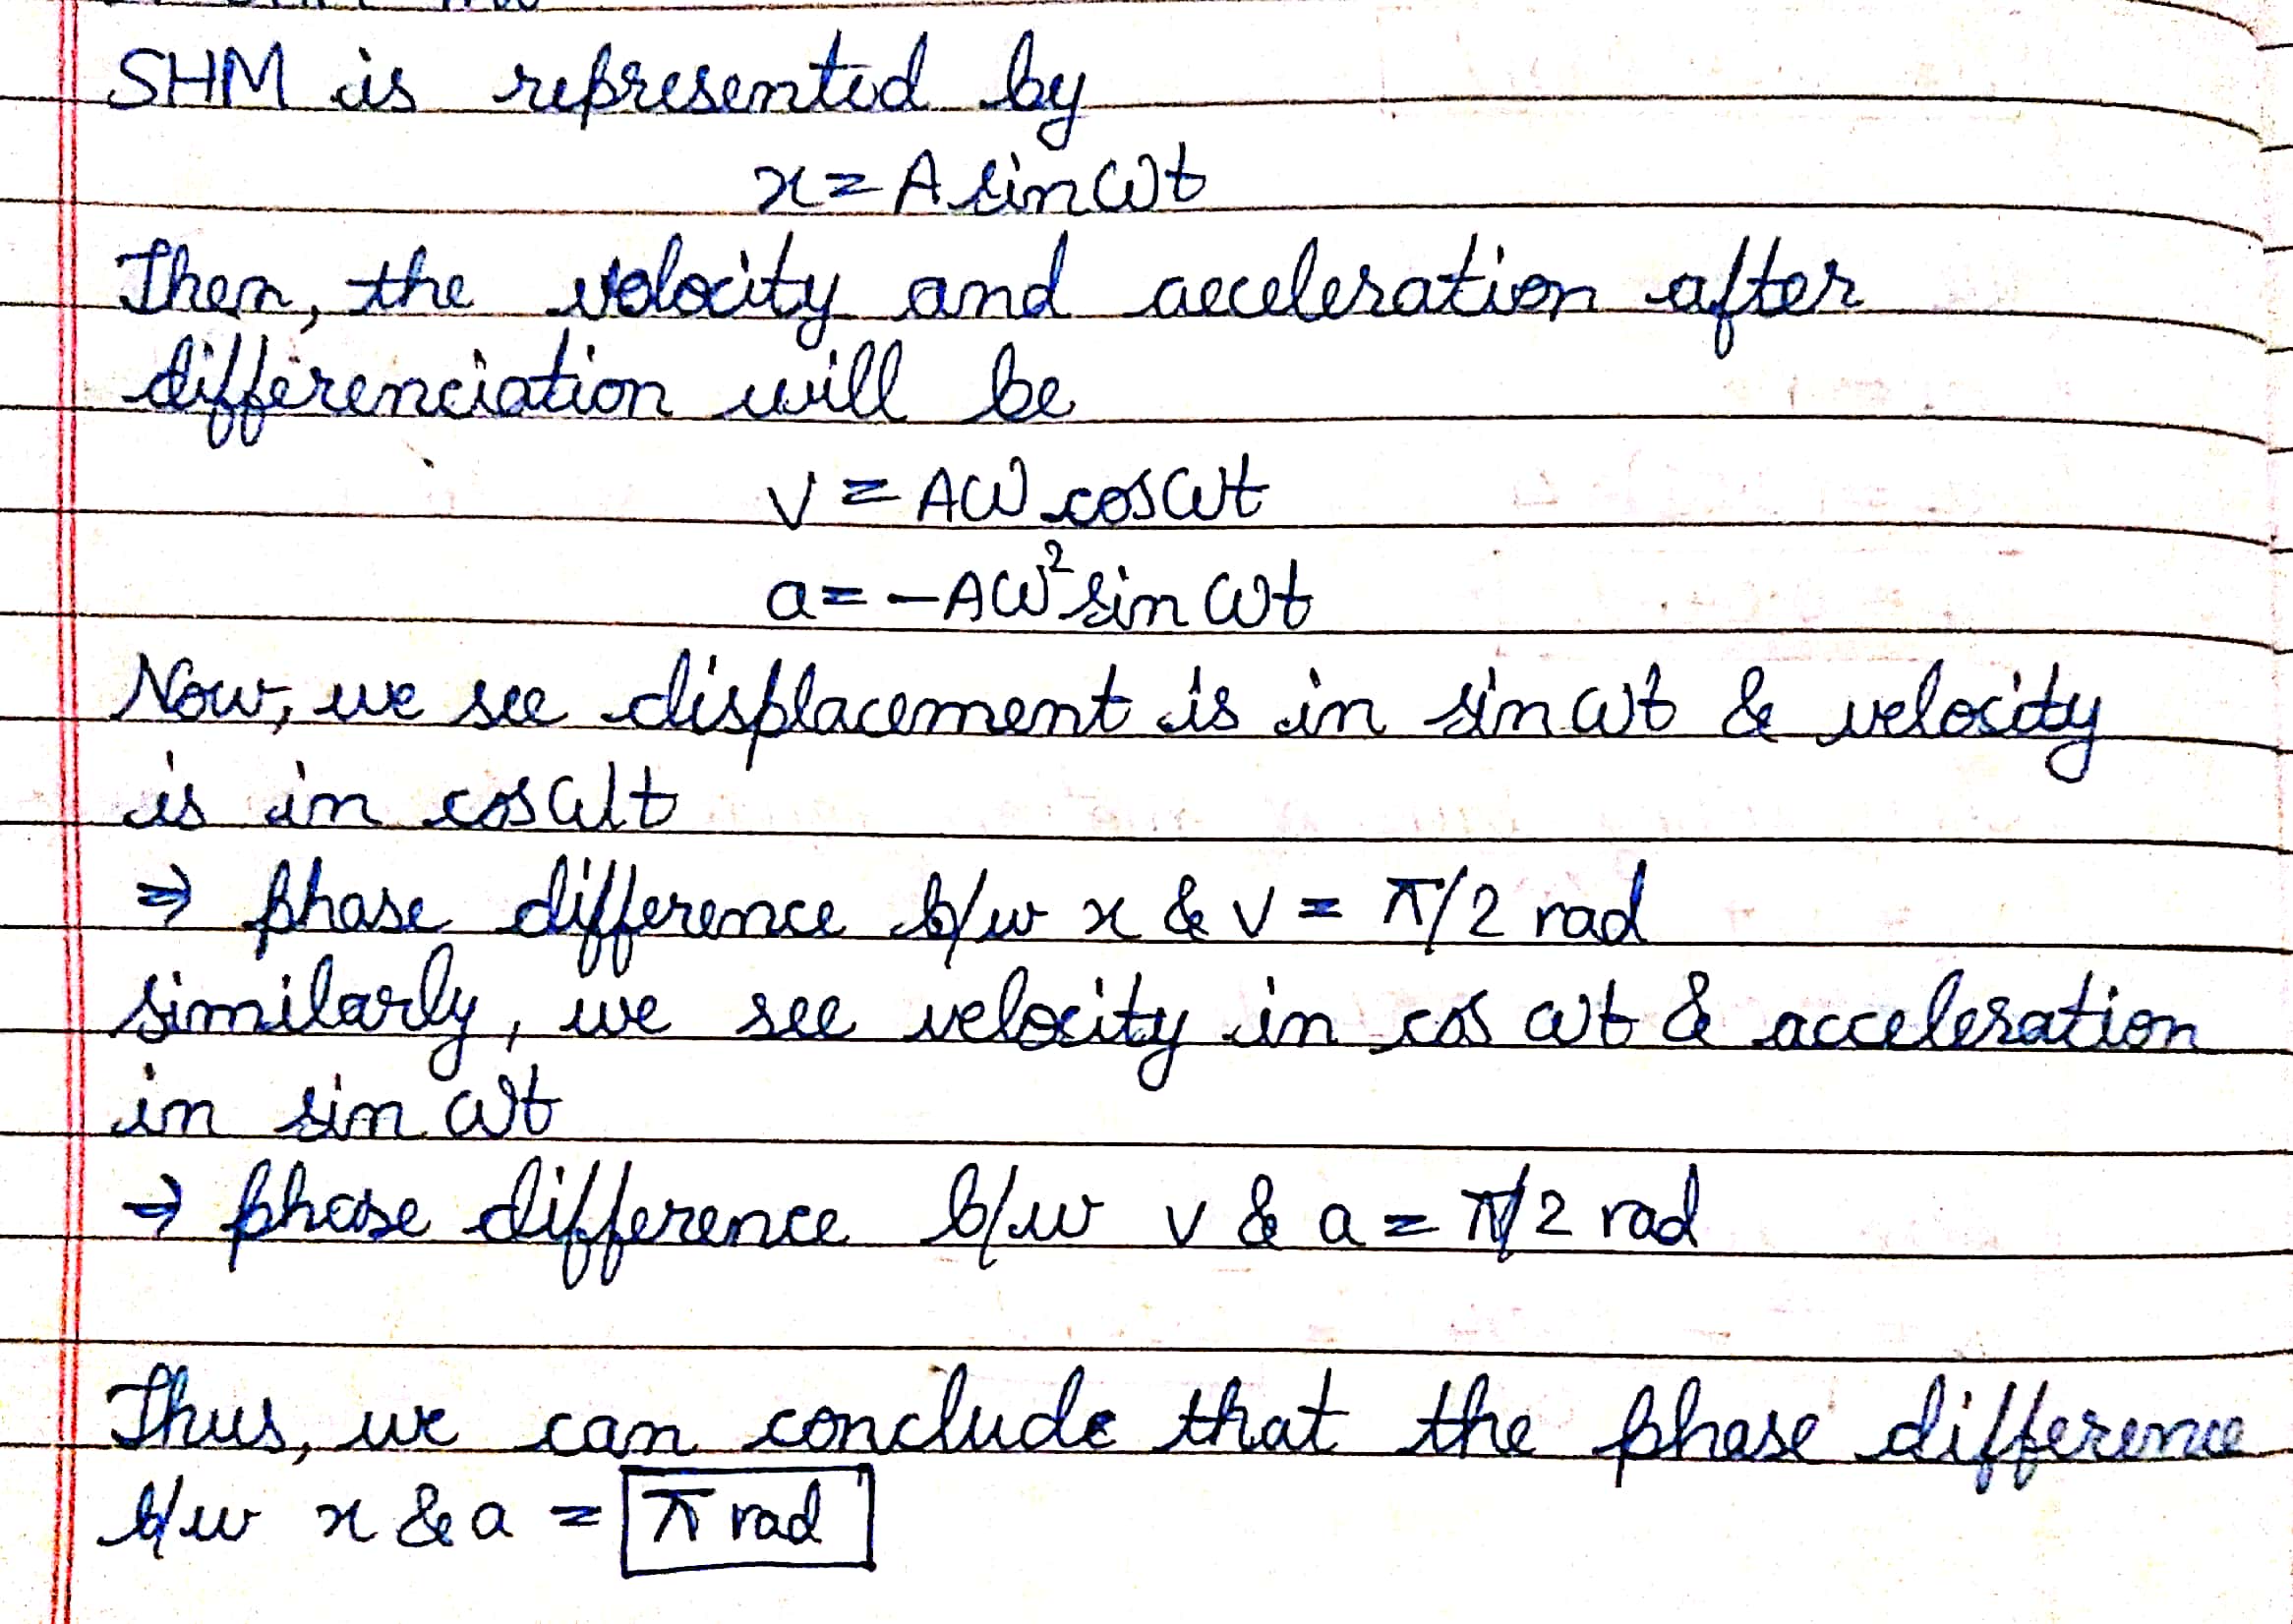 SHM is represented by
x = A sin ωt
Then, the velocity and acceleration after
differenciation will be
v = Aω cos ωt
a = -Aω² sin ωt
Now, we see displacement is in sin ωt & velocity
is in cos ωt
⇒ phase difference b/w x & v = π/2 rad
similarly, we see velocity in cos ωt & acceleration
in sin ωt
→ phase difference b/w v & a = π/2 rad
Thus, we can conclude that the phase difference
b/w x & a = π rad